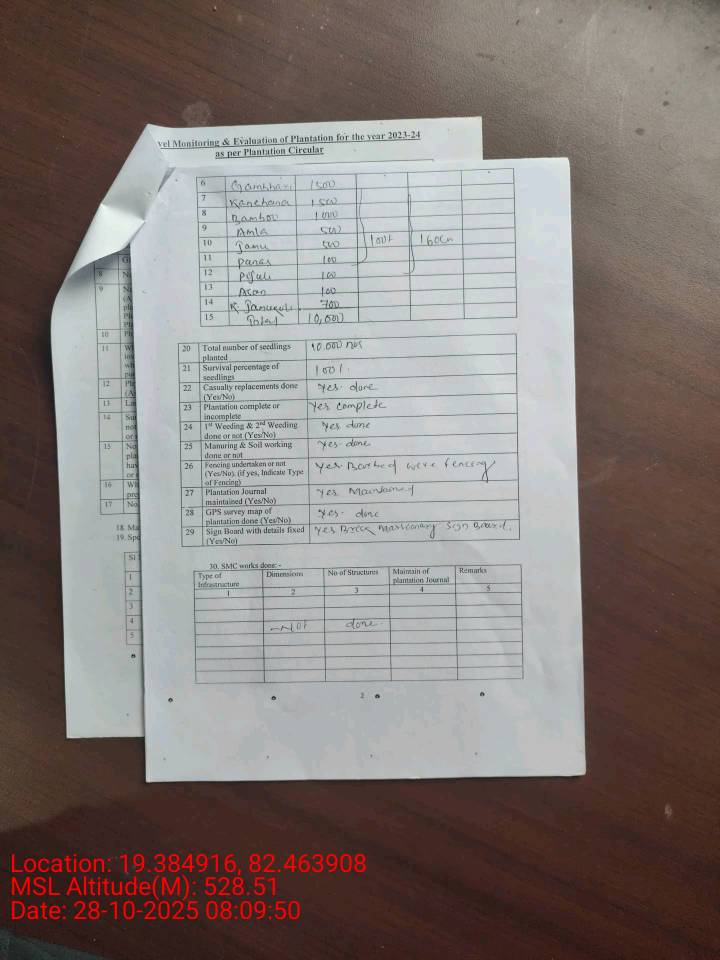 vel Monitoring & Evaluation of Plantation for the year 2023-24
as per Plantation Circular
6 Gambhari 1500
7 Kanchana 1500
8 Bamboo 1000
9 Amla 500
10 Jamu 500
11 Panas 100
12 100
13 Asan 100
14 700
15 Total 10,000
100% 160cm
20 Total number of seedlings planted 10.000 nos
21 Survival percentage of seedlings 100%
22 Casualty replacements done (Yes/No) Yes. done
23 Plantation complete or incomplete Yes complete
24 1st Weeding & 2nd Weeding done or not (Yes/No) Yes done
25 Manuring & Soil working done or not Yes-done
26 Fencing undertaken or not (Yes/No). (if yes, Indicate Type of Fencing) Yes Barbed wire fencing
27 Plantation Journal maintained (Yes/No) Yes Maintained
28 GPS survey map of plantation done (Yes/No) Yes- done
29 Sign Board with details fixed (Yes/No) Yes Brick Massionary Sign Board.
30. SMC works done: -
Type of Infrastructure Dimensions No of Structures Maintain of plantation Journal Remarks
1 2 3 4 5
Not done
2
8
9
10
11
12
13
14
15
16
17
18. Ma
19. Spe
Sl
1
2
3
4
5
Location: 19.384916, 82.463908
MSL Altitude(M): 528.51
Date: 28-10-2025 08:09:50